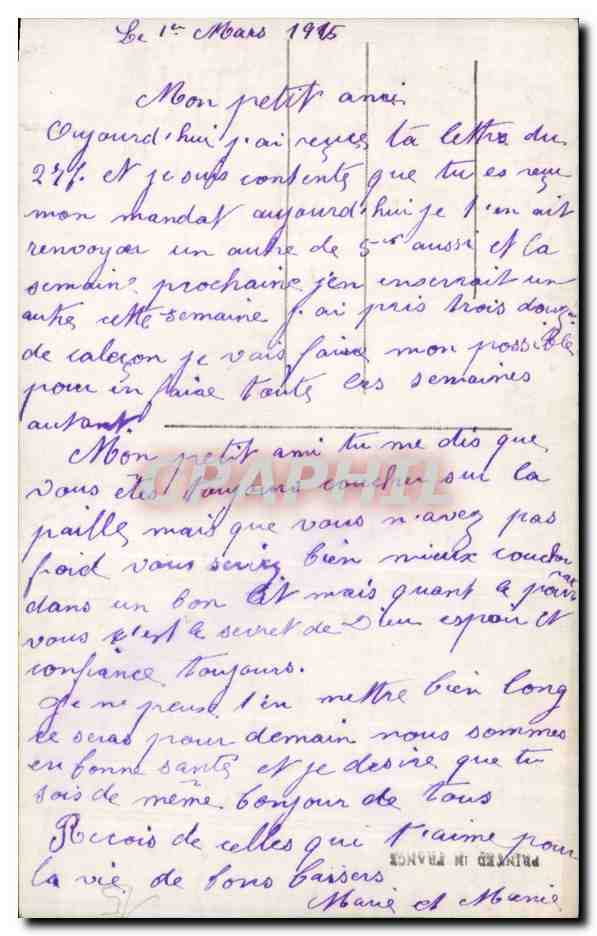 Le 1er Mars 1915
Mon petit ami
Aujourd'hui j'ai reçue ta lettre du
27f. et je suis contente que tu es reçu
mon mandat aujourd'hui je t'en ait
renvoyer un autre de 5 aussi et la
semaine prochaine j'en un
autre cette semaine j'ai pris trois douz
de caleçon je vais faire mon possible
pour en faire toute les semaines
autant.
Mon petit ami tu me dis que
vous êtes toujours coucher sur la
paille mais que vous n'avez pas
froid vous seriez bien mieux coucher
dans un bon lit mais quant le
vous c'est le secret de Dieu espoir et
confiance toujours.
Je ne peux t'en mettre bien long
ce seras pour demain nous sommes
en bonne santé et je désire que tu
sois de même. bonjour de tous
Recois de celles qui t'aime pour
la vie de bons baisers
Marie et
PRINTED IN FRANCE
CPAPHIL